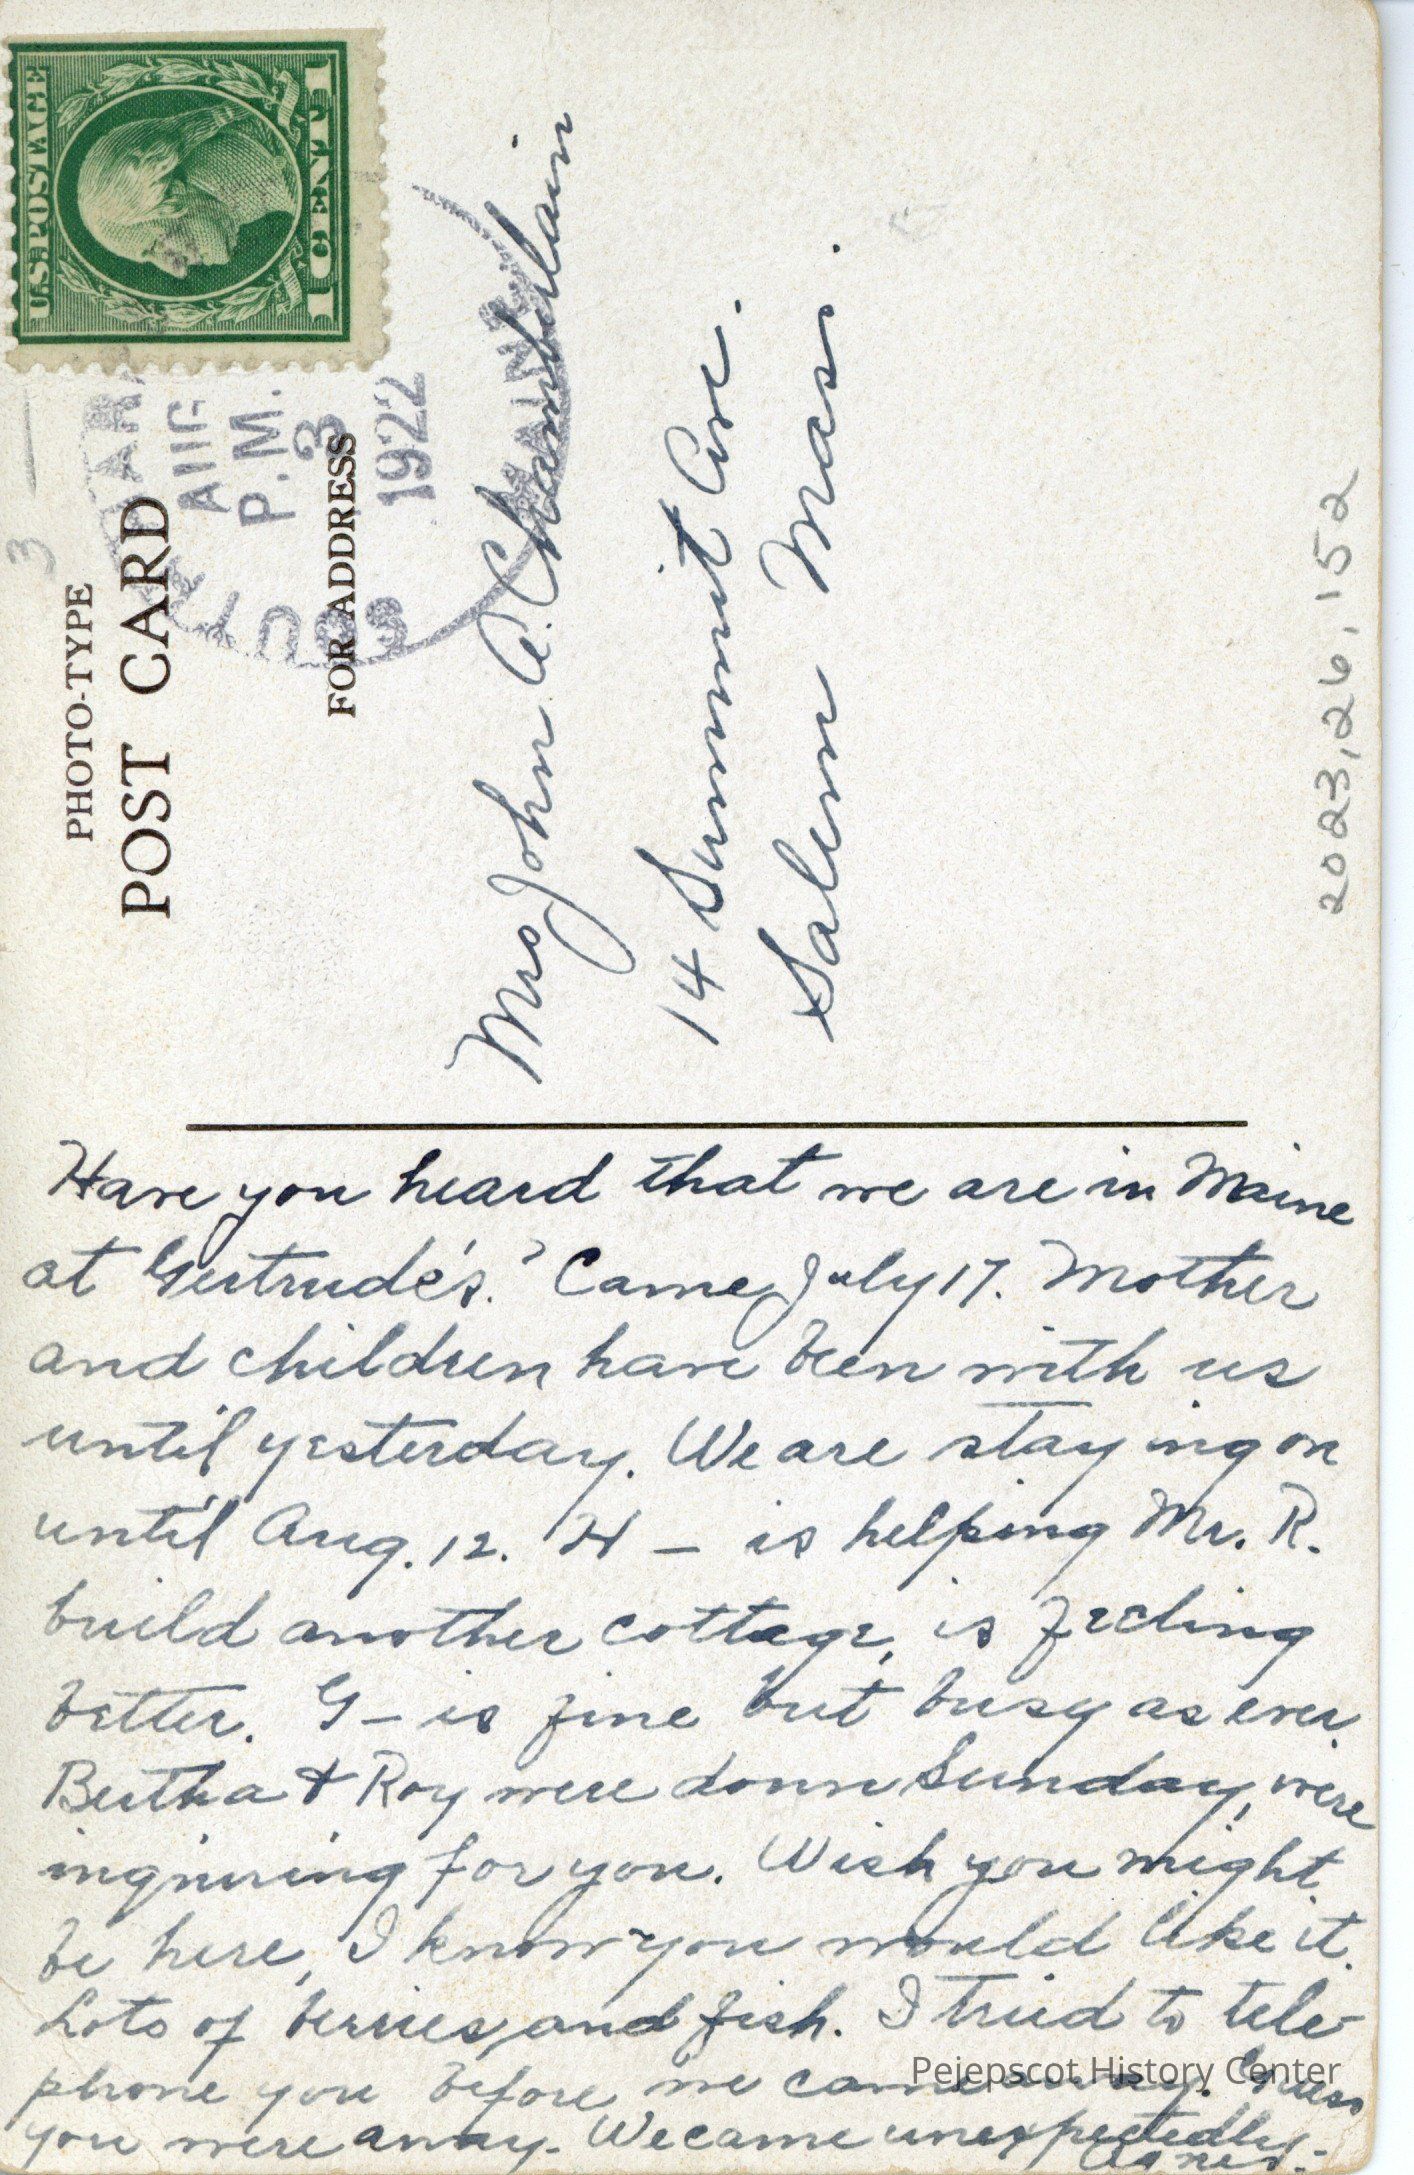 U.S. POSTAGE
1 CENT 1
SOUTH HAR
MAINE
AUG
3
P.M.
1922
PHOTO-TYPE
POST CARD
FOR ADDRESS
Mrs John A. Chamberlain
14 Summit Ave.
Salem Mass.
2023.26.152
Have you heard that we are in Maine
at Gertrude's? Came July 17. Mother
and children have been with us
until yesterday. We are staying on
until Aug. 12. H — is helping Mr. R.
build another cottage, is feeling
better. G — is fine but busy as ever.
Bertha & Roy were down Sunday, were
inquiring for you. Wish you might
be here, I know you would like it.
Lots of berries, and fish. I tried to tele-
phone you before we came away. Guess
you were away. We came unexpectedly.
Agnes.
Pejepscot History Center